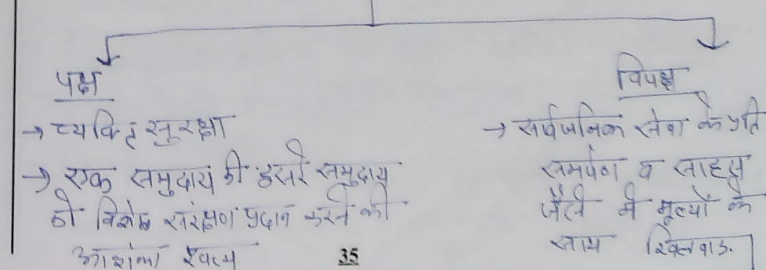 पक्ष
→ व्यक्ति सुरक्षा
→ एक समुदाय की दूसरे समुदाय
को विशेष संरक्षण प्रदान करने की
आशंका
35
विपक्ष
→ सार्वजनिक सेवा के प्रति
समर्पण व साहस
जैसे मूल्यों के
साथ खिलवाड.